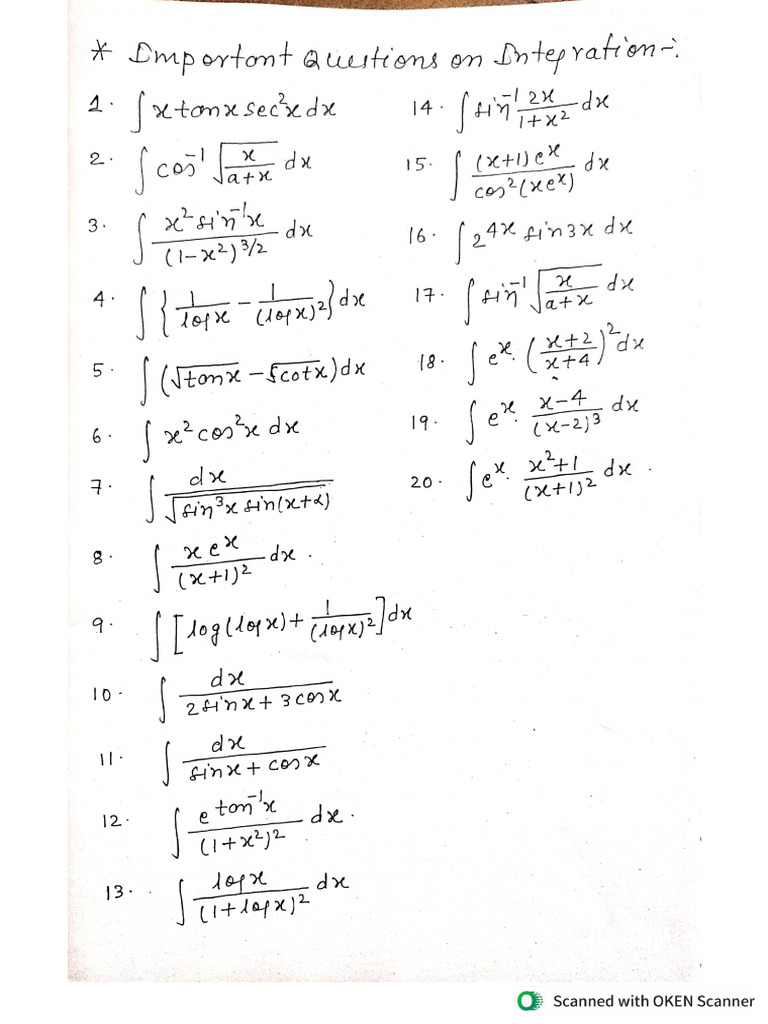 * Important Questions on Integration :-
1. ∫ x tanx sec²x dx
2. ∫ cos⁻¹ √(x/(a+x)) dx
3. ∫ (x² sin⁻¹x)/((1-x²)^(3/2)) dx
4. ∫ {1/logx - 1/(logx)²} dx
5. ∫ (√tanx - √cotx) dx
6. ∫ x² cos²x dx
7. ∫ dx/√(sin³x sin(x+α))
8. ∫ (x eˣ)/((x+1)²) dx.
9. ∫ [log(logx) + 1/(logx)²] dx
10. ∫ dx/(2 sinx + 3 cosx)
11. ∫ dx/(sinx + cosx)
12. ∫ (e^(tan⁻¹x))/((1+x²)²) dx.
13. ∫ logx/((1+logx)²) dx
14. ∫ sin⁻¹ (2x/(1+x²)) dx
15. ∫ ((x+1)eˣ)/(cos²(xeˣ)) dx
16. ∫ 2^(4x) sin3x dx
17. ∫ sin⁻¹ √(x/(a+x)) dx
18. ∫ eˣ. ((x+2)/(x+4))² dx
19. ∫ eˣ. (x-4)/((x-2)³) dx
20. ∫ eˣ. (x²+1)/((x+1)²) dx.
Scanned with OKEN Scanner